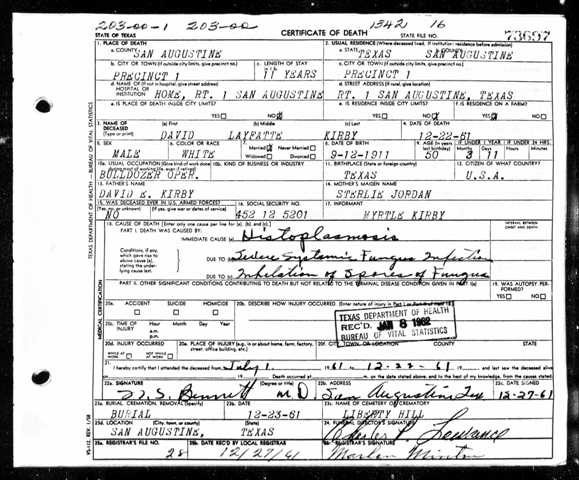 203-00-1 203-00 1342 16
STATE OF TEXAS CERTIFICATE OF DEATH STATE FILE NO. 73697
1. PLACE OF DEATH 2. USUAL RESIDENCE (Where deceased lived. If institution: residence before admission)
a. COUNTY SAN AUGUSTINE a. STATE TEXAS b. COUNTY SAN AUGUSTINE
b. CITY OR TOWN (If outside city limits, give precinct no.) c. LENGTH OF STAY c. CITY OR TOWN (If outside city limits, give precinct no.)
PRECINCT 1 11 YEARS PRECINCT 1
d. NAME OF (If not in hospital, give street address) HOSPITAL OR INSTITUTION d. STREET ADDRESS (If rural, give location)
HOME, RT. 1 SAN AUGUSTINE RT. 1 SAN AUGUSTINE, TEXAS
e. IS PLACE OF DEATH INSIDE CITY LIMITS? e. IS RESIDENCE INSIDE CITY LIMITS? f. IS RESIDENCE ON A FARM?
YES NO YES NO YES NO
3. NAME OF DECEASED (Type or print) (a) First (b) Middle (c) Last 4. DATE OF DEATH
DAVID LAYFATTE KIRBY 12-22-61
5. SEX 6. COLOR OR RACE 7. Married Never Married Widowed Divorced 8. DATE OF BIRTH 9. AGE (In years last birthday) IF UNDER 1 YEAR IF UNDER 24 HRS Months Days Hours Minutes
MALE WHITE 9-12-1911 50 3 11
10a. USUAL OCCUPATION 10b. KIND OF BUSINESS OR INDUSTRY 11. BIRTHPLACE (State or foreign country) 12. CITIZEN OF WHAT COUNTRY?
BULLDOZER OPER. TEXAS U.S.A.
13. FATHER'S NAME 14. MOTHER'S MAIDEN NAME
DAVID E. KIRBY STERLIE JORDAN
15. WAS DECEASED EVER IN U.S. ARMED FORCES? (Yes, no, or unknown) (If yes, give war or dates of service) 16. SOCIAL SECURITY NO. 17. INFORMANT
NO 452 12 5201 MYRTLE KIRBY
18. CAUSE OF DEATH (Enter only one cause per line for (a), (b), and (c).) INTERVAL BETWEEN ONSET AND DEATH
PART I. DEATH WAS CAUSED BY:
IMMEDIATE CAUSE (a) Histoplasmosis
Conditions, if any, which gave rise to above cause (a), stating the underlying cause last.
DUE TO (b) Severe Systemic Fungus Infection
DUE TO (c) Inhalation of Spores of Fungus
PART II. OTHER SIGNIFICANT CONDITIONS CONTRIBUTING TO DEATH BUT NOT RELATED TO THE TERMINAL DISEASE CONDITION GIVEN IN PART I(a) 19. WAS AUTOPSY PERFORMED?
YES NO
20a. ACCIDENT SUICIDE HOMICIDE 20b. DESCRIBE HOW INJURY OCCURRED.
20c. TIME OF INJURY Hour Month Day Year a.m. p.m.
TEXAS DEPARTMENT OF HEALTH
REC'D. JAN 8 1962
BUREAU OF VITAL STATISTICS
20d. INJURY OCCURRED WHILE AT WORK NOT WHILE AT WORK 20e. PLACE OF INJURY (e.g., in or about home, farm, factory, street, office building, etc.) 20f. CITY, TOWN OR LOCATION COUNTY STATE
21. I hereby certify that I attended the deceased from July 1, 61 to 12-22-61
22a. SIGNATURE (Degree or title) 22b. ADDRESS 22c. DATE SIGNED
Bennett M.D San Augustine Tex 12-27-61
23a. BURIAL, CREMATION, REMOVAL (Specify) 23b. DATE 23c. NAME OF CEMETERY OR CREMATORY
BURIAL 12-23-61 LIBERTY HILL
23d. LOCATION (City, town, or county) (State) 24. FUNERAL DIRECTOR'S SIGNATURE
SAN AUGUSTINE, TEXAS Charles P.
25a. REGISTRAR'S FILE NO. 25b. DATE REC'D BY LOCAL REGISTRAR
28 12/27/61 Marlen Minton
TEXAS DEPARTMENT OF HEALTH—BUREAU OF VITAL STATISTICS
MEDICAL CERTIFICATION